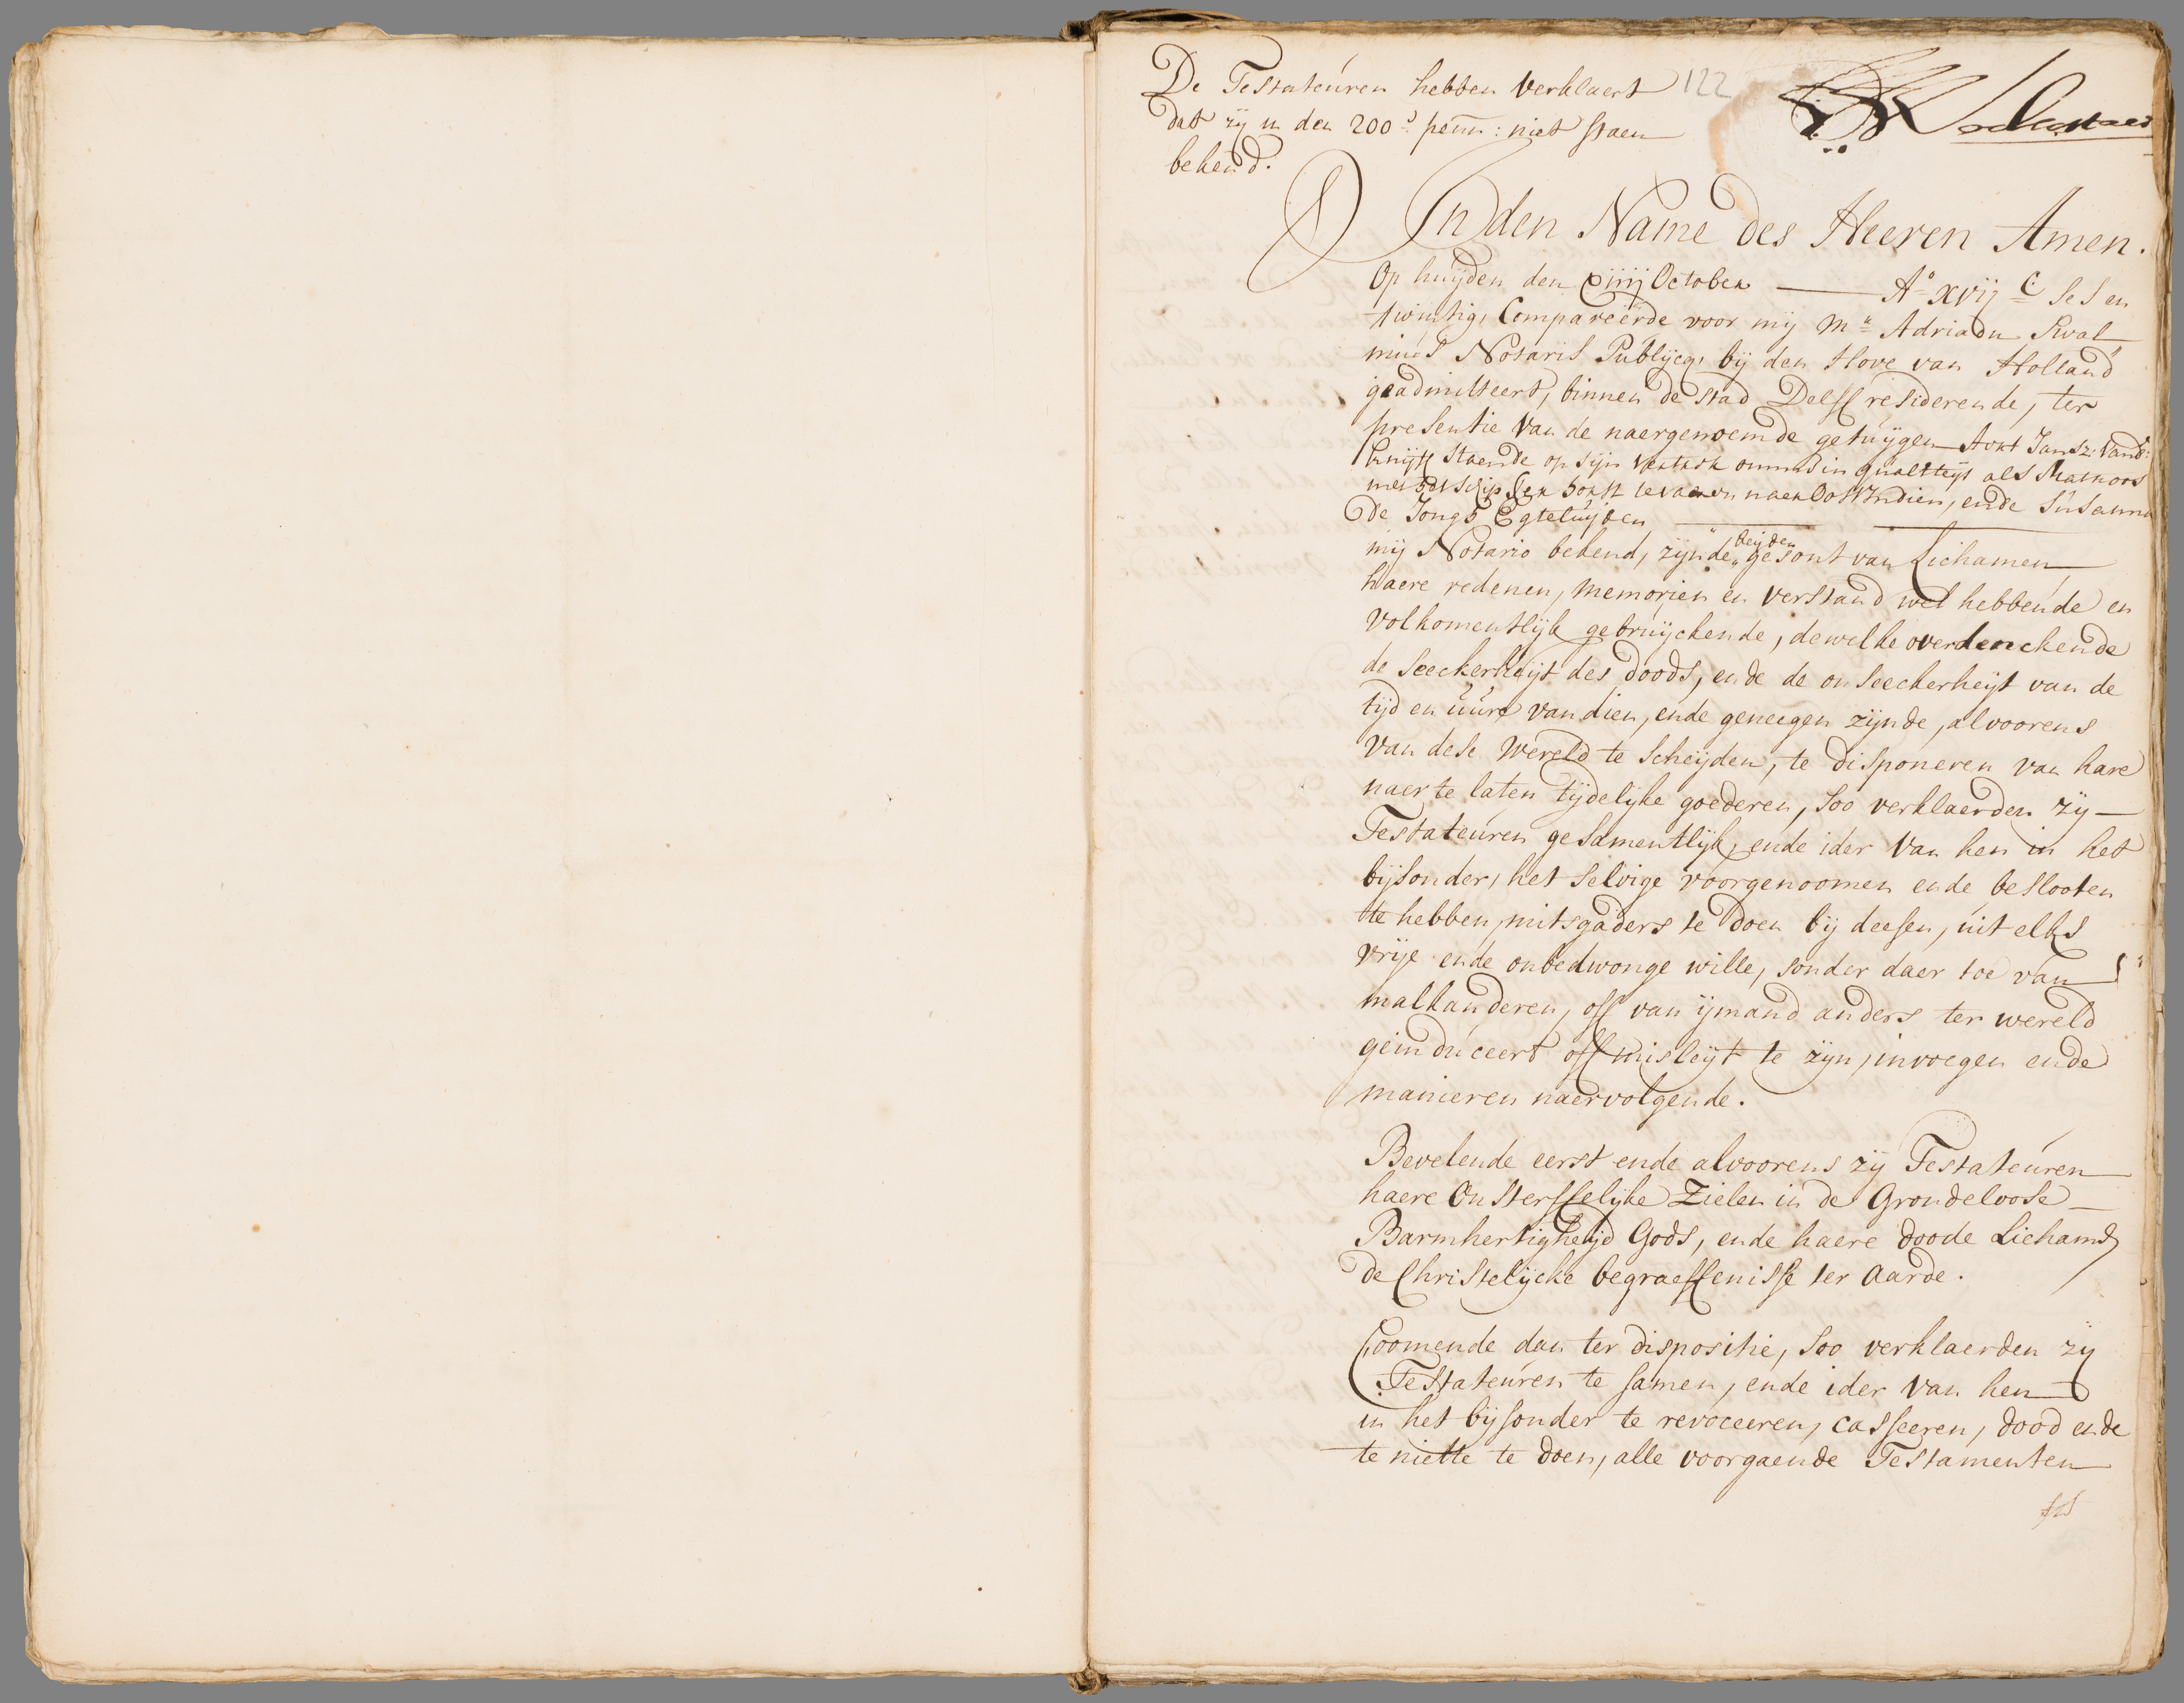 De Testateuren hebben verklaert
dat zij in den 200.e penn: niet staen
bekend.
122
In den Name des Heeren Amen.
Op huijden den xiiij October A.o xvij C ses en
twintig, Compareerde voor mij M.r Adriaan Kwal
mius Notaris Publijcq, bij den Hove van Holland
geadmitteert, binnen de stad Delff residerende, ter
presentie van de naergenoemde getuijgen Aert Jansz: vand:
staende op sijn vertrek omme in qualiteijt als Matroos
met het schip ter te vaaren naer Oostindien, ende Susanna
de Jongh Egteluijden
mij Notario bekend, zijnde beijden gesont van Lichamen,
haere redenen, memorien en verstand wel hebbende en
volkomentlijk gebruijckende, dewelke overdenckende
de seeckerheijt des doods, ende de onseeckerheijt van de
tijd en uure van dien, ende geneegen zijnde, alvoorens
van dese wereld te scheijden, te disponeren van hare
naer te laten tijdelijke goederen, soo verklaerden zij
Testateuren gesamentlijk, ende ider van hen in het
bijsonder, het selvige voorgenoomen ende beslooten
te hebben, mitsgaders te doen bij deesen, uit elks
vrije ende onbedwonge wille, sonder daer toe van
malkanderen, off van ijmand anders ter wereld
geinduceert off misleijt te zijn, invoegen ende
manieren naervolgende.
Bevelende eerst ende alvoorens zij Testateuren
haere Onsterffelijke Zielen in de Grondeloose
Barmhertigheijd Gods, ende haere doode Lichams
de Christelijcke begraeffenisse ter Aarde.
Coomende dan ter dispositie, soo verklaerden zij
Testateuren te samen, ende ider van hen
in het bijsonder te revoceeren, casseeren, dood ende
te niette te doen, alle voorgaende Testamenten